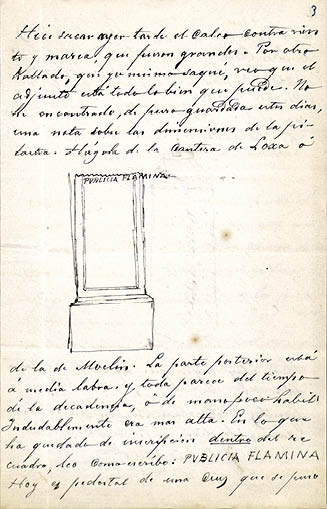 3
Hice sacar ayer tarde el calco contra vien
to y marea, que fueron grandes. Por otro
hallado, que yo mismo saqué, veo que el
adjunto está todo lo bien que puede. No
he encontrado, de puro guardada estos dias,
una nota sobre las dimensiones de la pi
lastra. Hágola de la cantera de Loxa ó
PVBLICIA FLAMINA
de la de Moclin. La parte posterior está
á media labra. y toda parece del tiempo
de la decadencia, ó de mano poco habil
Indudablemente era mas alta. En lo que
ha quedado de inscripcion dentro del re
cuadro, leo como escribo: PVBLICIA FLAMINA
Hoy es pedestal de una Cruz que se puso